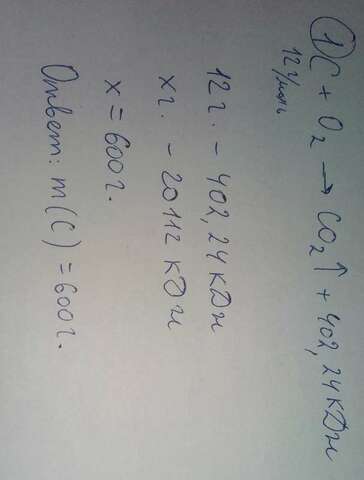 ① C + O₂ → CO₂↑ + 402,24 кДж
12 г/моль
12 г. - 402,24 кДж
х г. - 20112 кДж
х = 600 г.
Ответ: m(C) = 600 г.